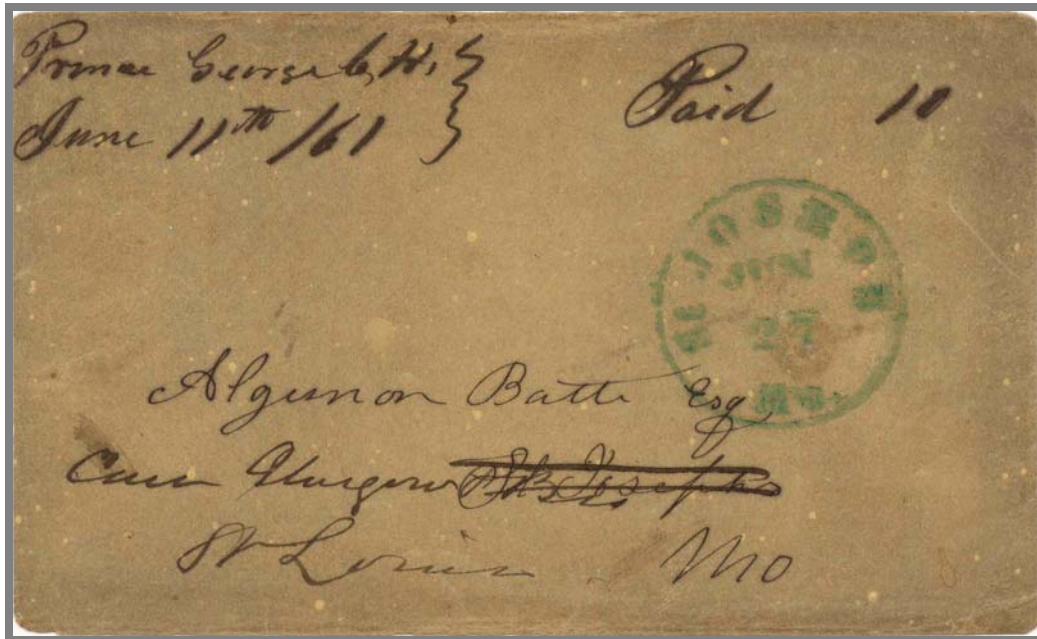 Prince George C, H,
June 11th /61
Paid 10
St JOSEPH
JUN
27
Mo.
Algernon Batte Esq
Care
St Joseph
St Louis Mo